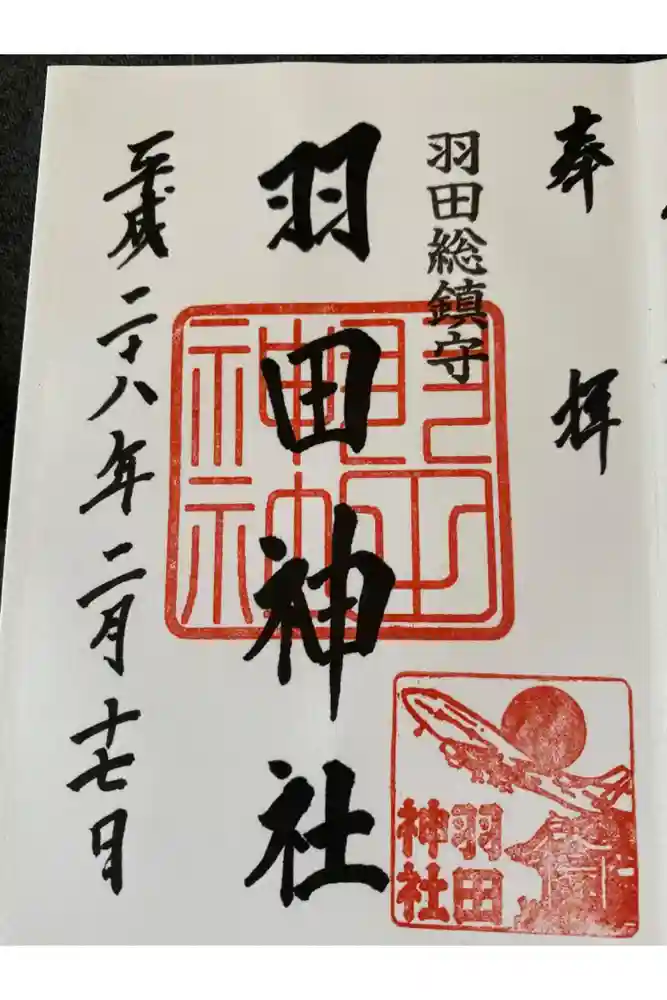 奉拝
羽田総鎮守
羽田神社
平成二十八年二月十七日
羽田
神社